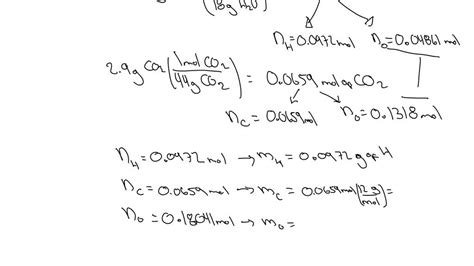 (18g H₂O)
n_H=0.0972mol n_O=0.04861mol
2.9g CO₂(1mol CO₂/44g CO₂) = 0.0659 mol of CO₂
n_C=0.0659mol n_O=0.1318mol
n_H=0.0972mol → m_H=0.0972g of H
n_C=0.0659mol → m_C=0.0659mol(12g/mol)=
n_O=0.1804mol → m_O=